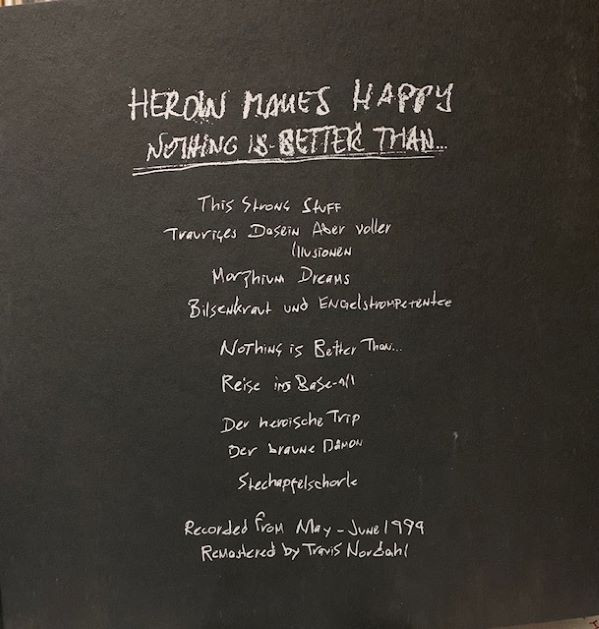 HEROIN MAKES HAPPY
NOTHING IS BETTER THAN...
This Strong Stuff
Trauriges Dasein Aber voller
Illusionen
Morphium Dreams
Bilsenkraut und Engelstrompetentee
Nothing is Better Than...
Reise ins Base-All
Der heroische Trip
Der braune Dämon
Stechapfelschorle
Recorded from May - June 1999
Remastered by Travis Nordahl